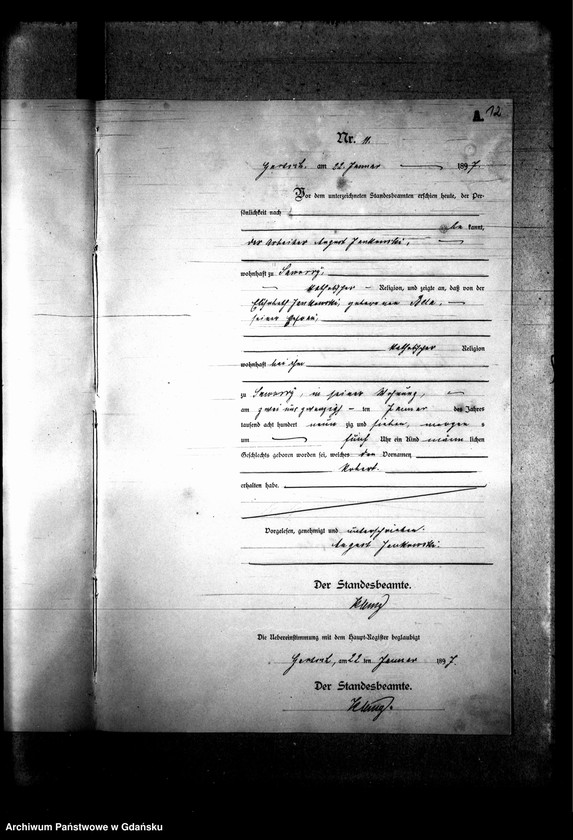 A. 12
Nr. 11.
am 22. Januar 1897.
Vor dem unterzeichneten Standesbeamten erschien heute, der Per-
sönlichkeit nach
be kannt,
der Arbeiter August Jankowski,
wohnhaft zu
katholischer Religion, und zeigte an, daß von der
Elisabeth Jankowski, geborenen
seiner Ehefrau,
katholischer Religion
wohnhaft bei ihm
zu in seiner Wohnung,
am zwei und zwanzigsten Januar des Jahres
tausend acht hundert neun zig und sieben, morgen s
um fünf Uhr ein Kind männ lichen
Geschlechts geboren worden sei, welches den Vornamen
Robert
erhalten habe.
Vorgelesen, genehmigt und unterschrieben.
August Jankowski.
Der Standesbeamte.
Die Uebereinstimmung mit dem Haupt-Register beglaubigt
am 22 ten Januar 1897.
Der Standesbeamte.
Archiwum Państwowe w Gdańsku